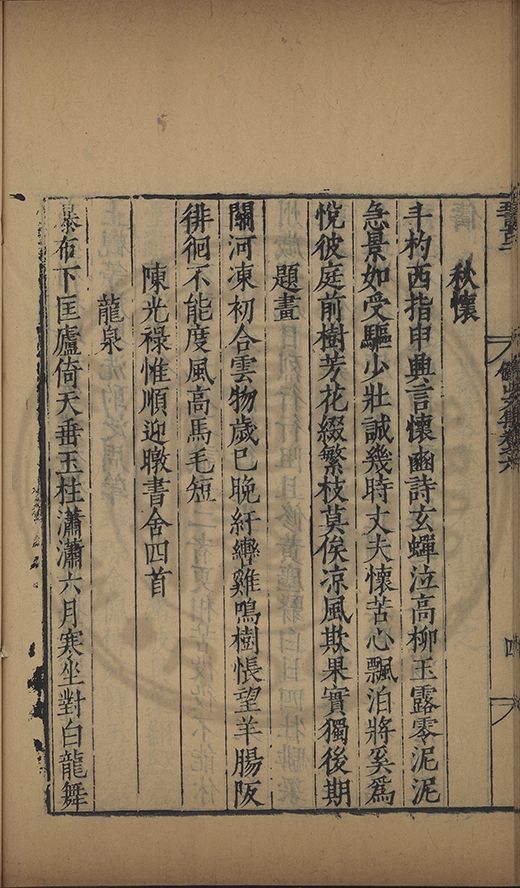 秋懷
斗杓西指申與言懷豳詩玄蟬泣高柳玉露零泥泥
急景如受驅少壯誠幾時丈夫懷苦心飄泊將奚為
悅彼庭前樹芳花綴繁枝莫俟凉風欺果實獨後期
題畫
關河凍初合雲物歲巳晚紆轡雞鳴樹悵望羊腸阪
徘徊不能度風高馬毛短
陳光祿惟順迎暾書舍四首
龍泉
瀑布下匡廬倚天垂玉柱瀟瀟六月寒坐對白龍舞